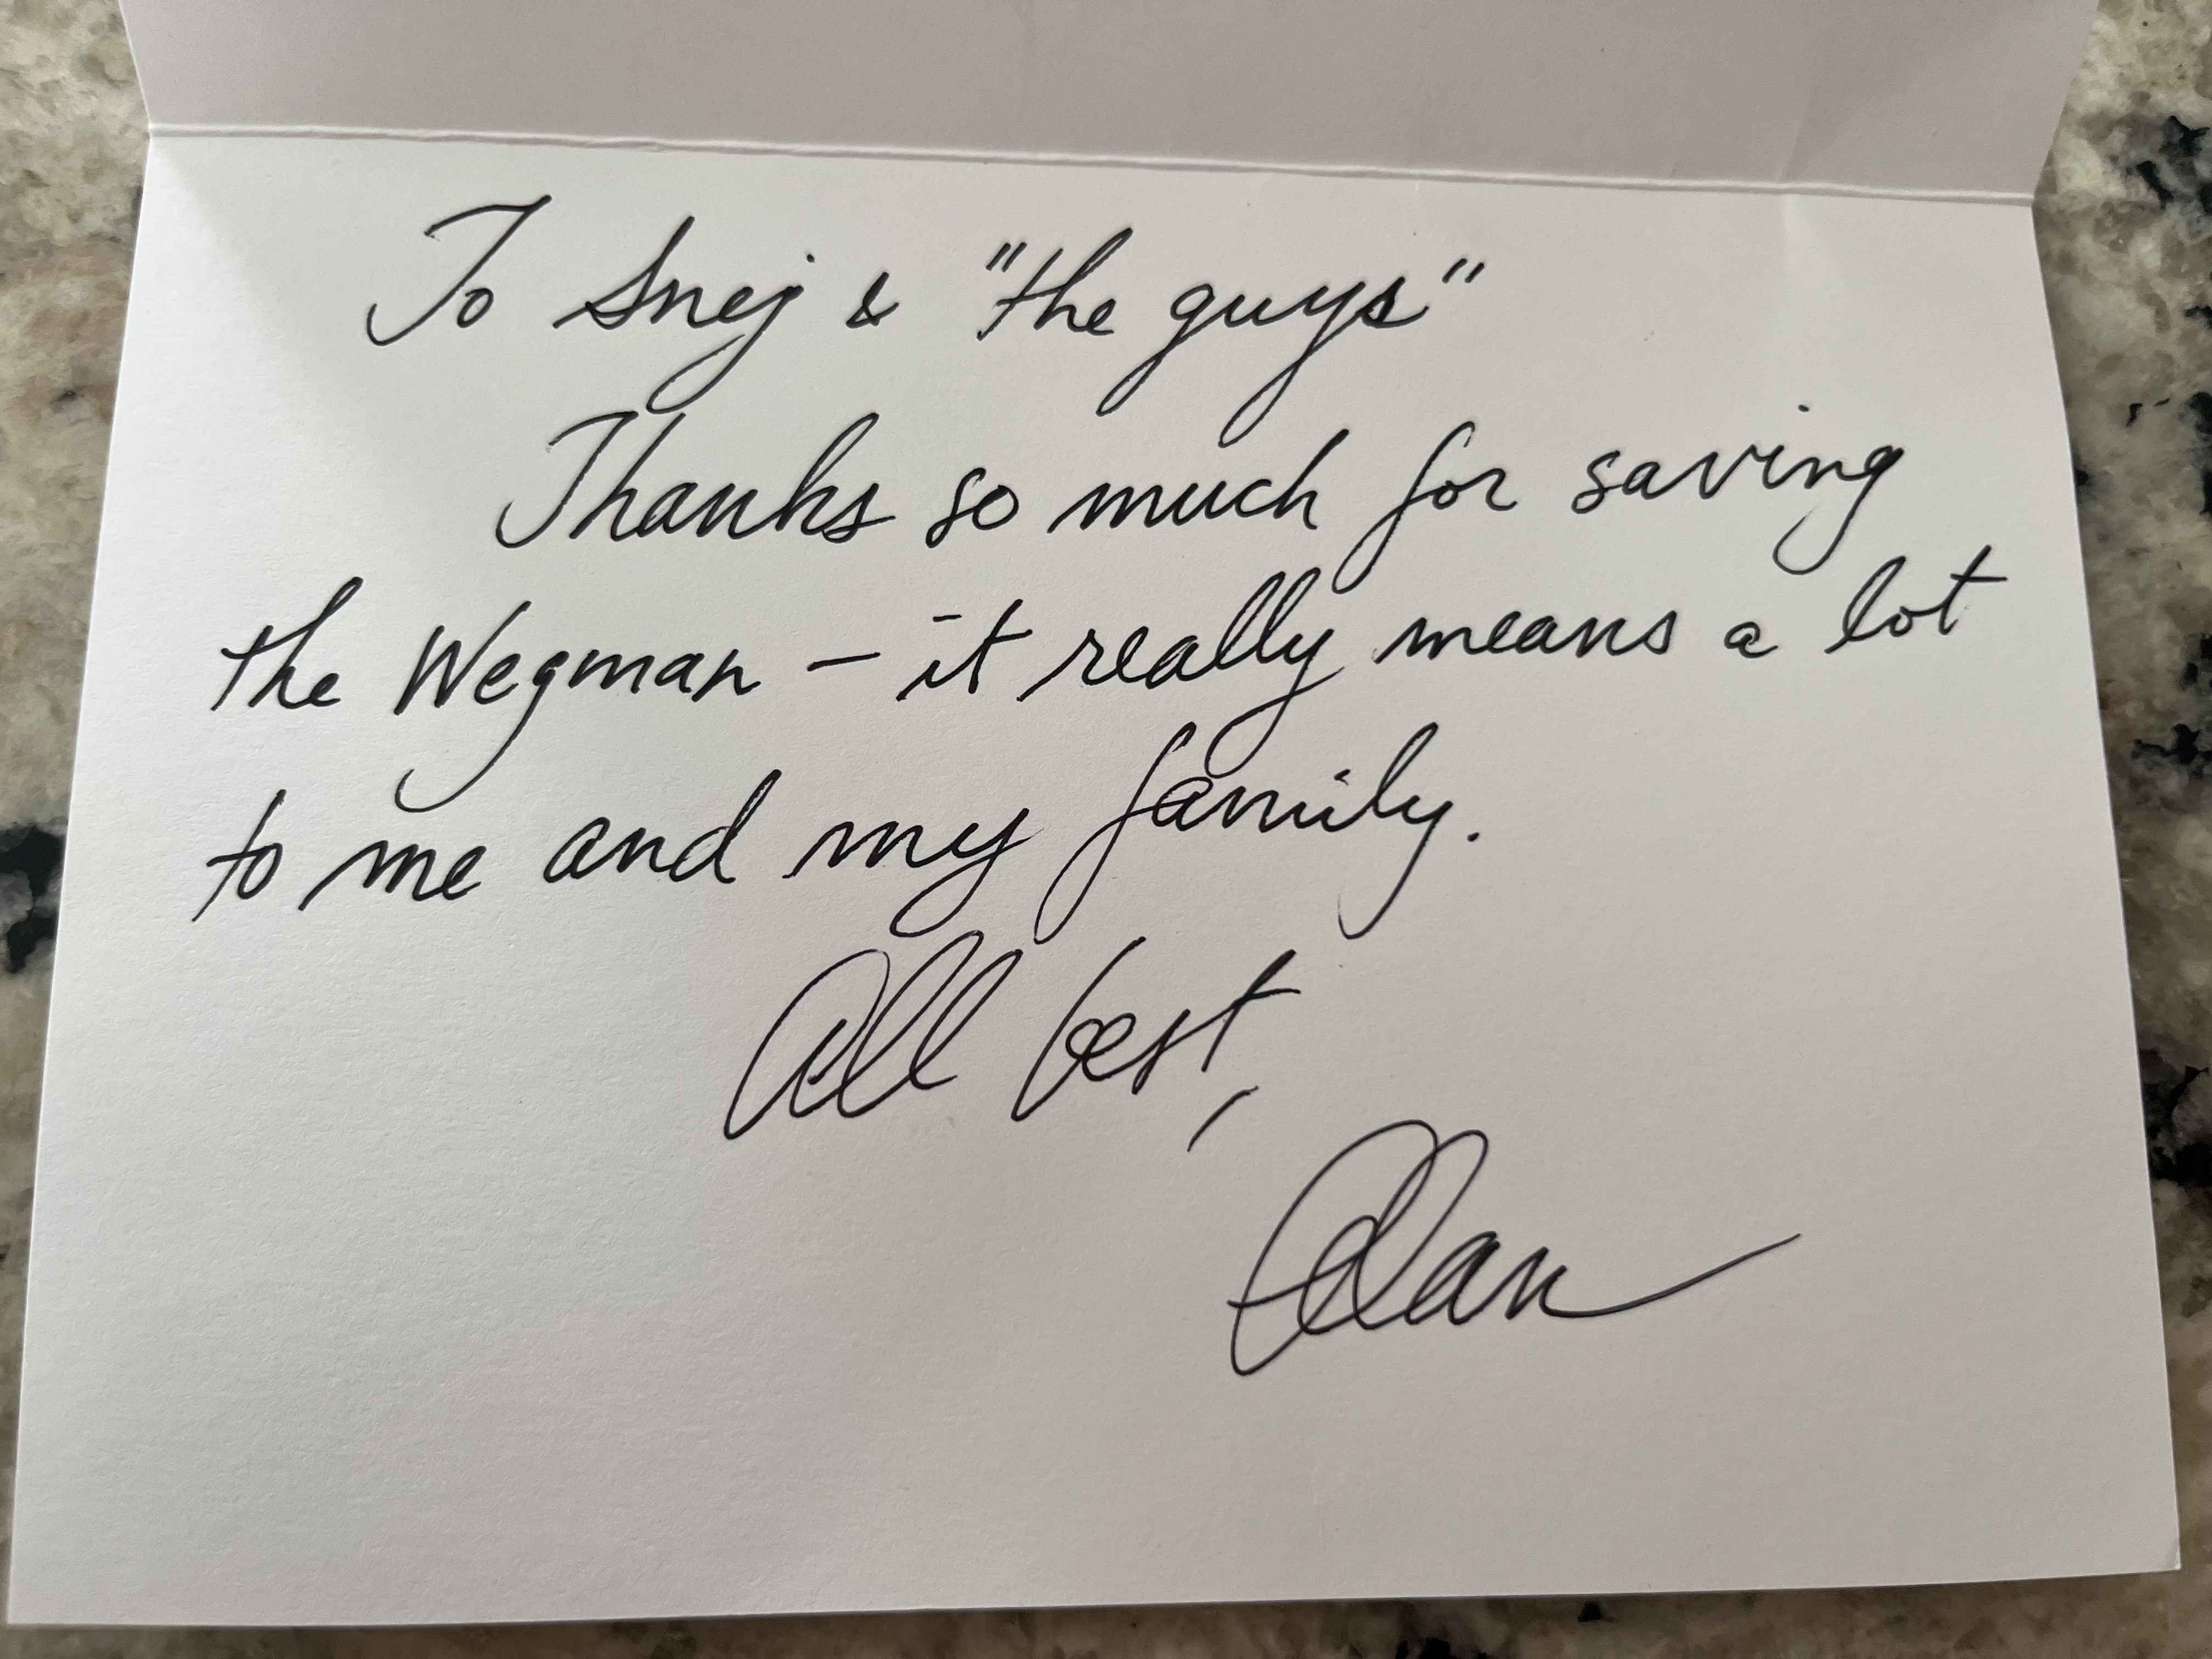 To Snej & "the guys"
Thanks so much for saving
the Wegman – it really means a lot
to me and my family.
All best,
Alan